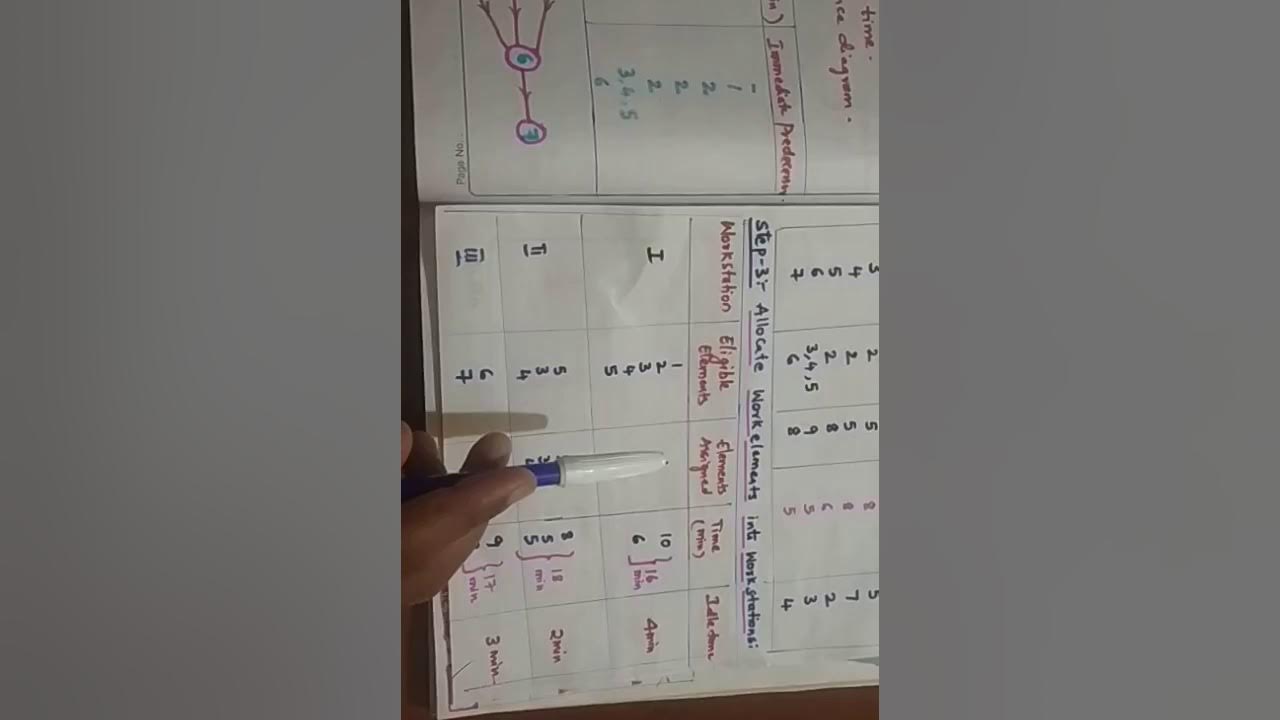 time.
ce diagram.
in) Immediate
-
1
2
2
2
3,4,5
6
6 7
Page No.
3 2 5 8 5
4 2 5 8 7
5 2 8 6 2
6 3,4,5 9 5 3
7 6 8 5 4
Step-3:- Allocate Work elements into Workstations:
Workstation Eligible Elements Elements Assigned Time (min) Idle time
I
1
2
3
4
5
10
6
16 min
4min
II
5
3
4
8
5
5
18 min
2min
III
6
7
9
17 min
3 min